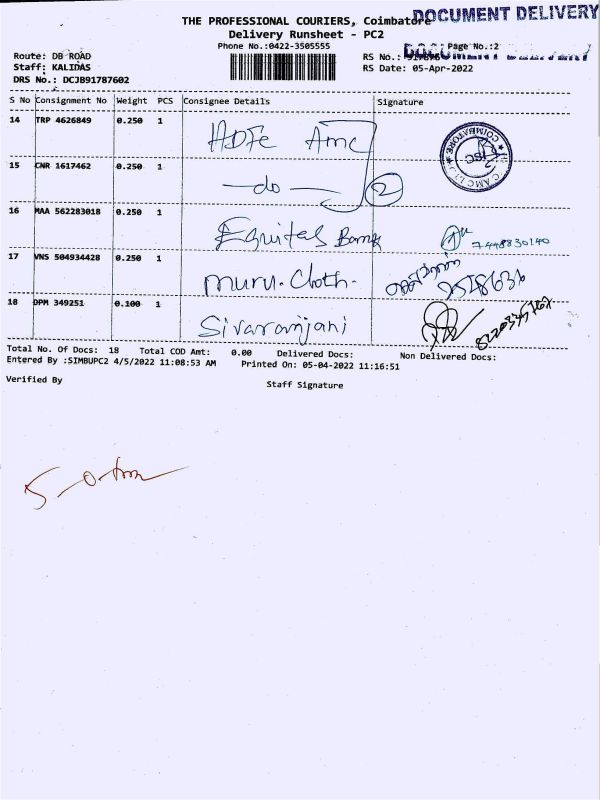 DOCUMENT DELIVERY
THE PROFESSIONAL COURIERS, Coimbatore
Delivery Runsheet - PC2
Phone No.:0422-3505555
Page No.:2
DOCUMENT DELIVERY
Route: DB ROAD
RS No.:
Staff: KALIDAS
RS Date: 05-Apr-2022
DRS No.: DCJB91787602
S No Consignment No Weight PCS Consignee Details Signature
14 TRP 4626849 0.250 1 HDFC Amc
COIMBATORE
ISC
15 CNR 1617462 0.250 1 —do— 2
16 MAA 562283018 0.250 1 Equitas Bank
7448830140
17 VNS 504934428 0.250 1 muru. Cloth.
18 DPM 349251 0.100 1 Sivaranjani
Total No. Of Docs: 18 Total COD Amt: 0.00 Delivered Docs: Non Delivered Docs:
Entered By :SIMBUPC2 4/5/2022 11:08:53 AM Printed On: 05-04-2022 11:16:51
Verified By
Staff Signature